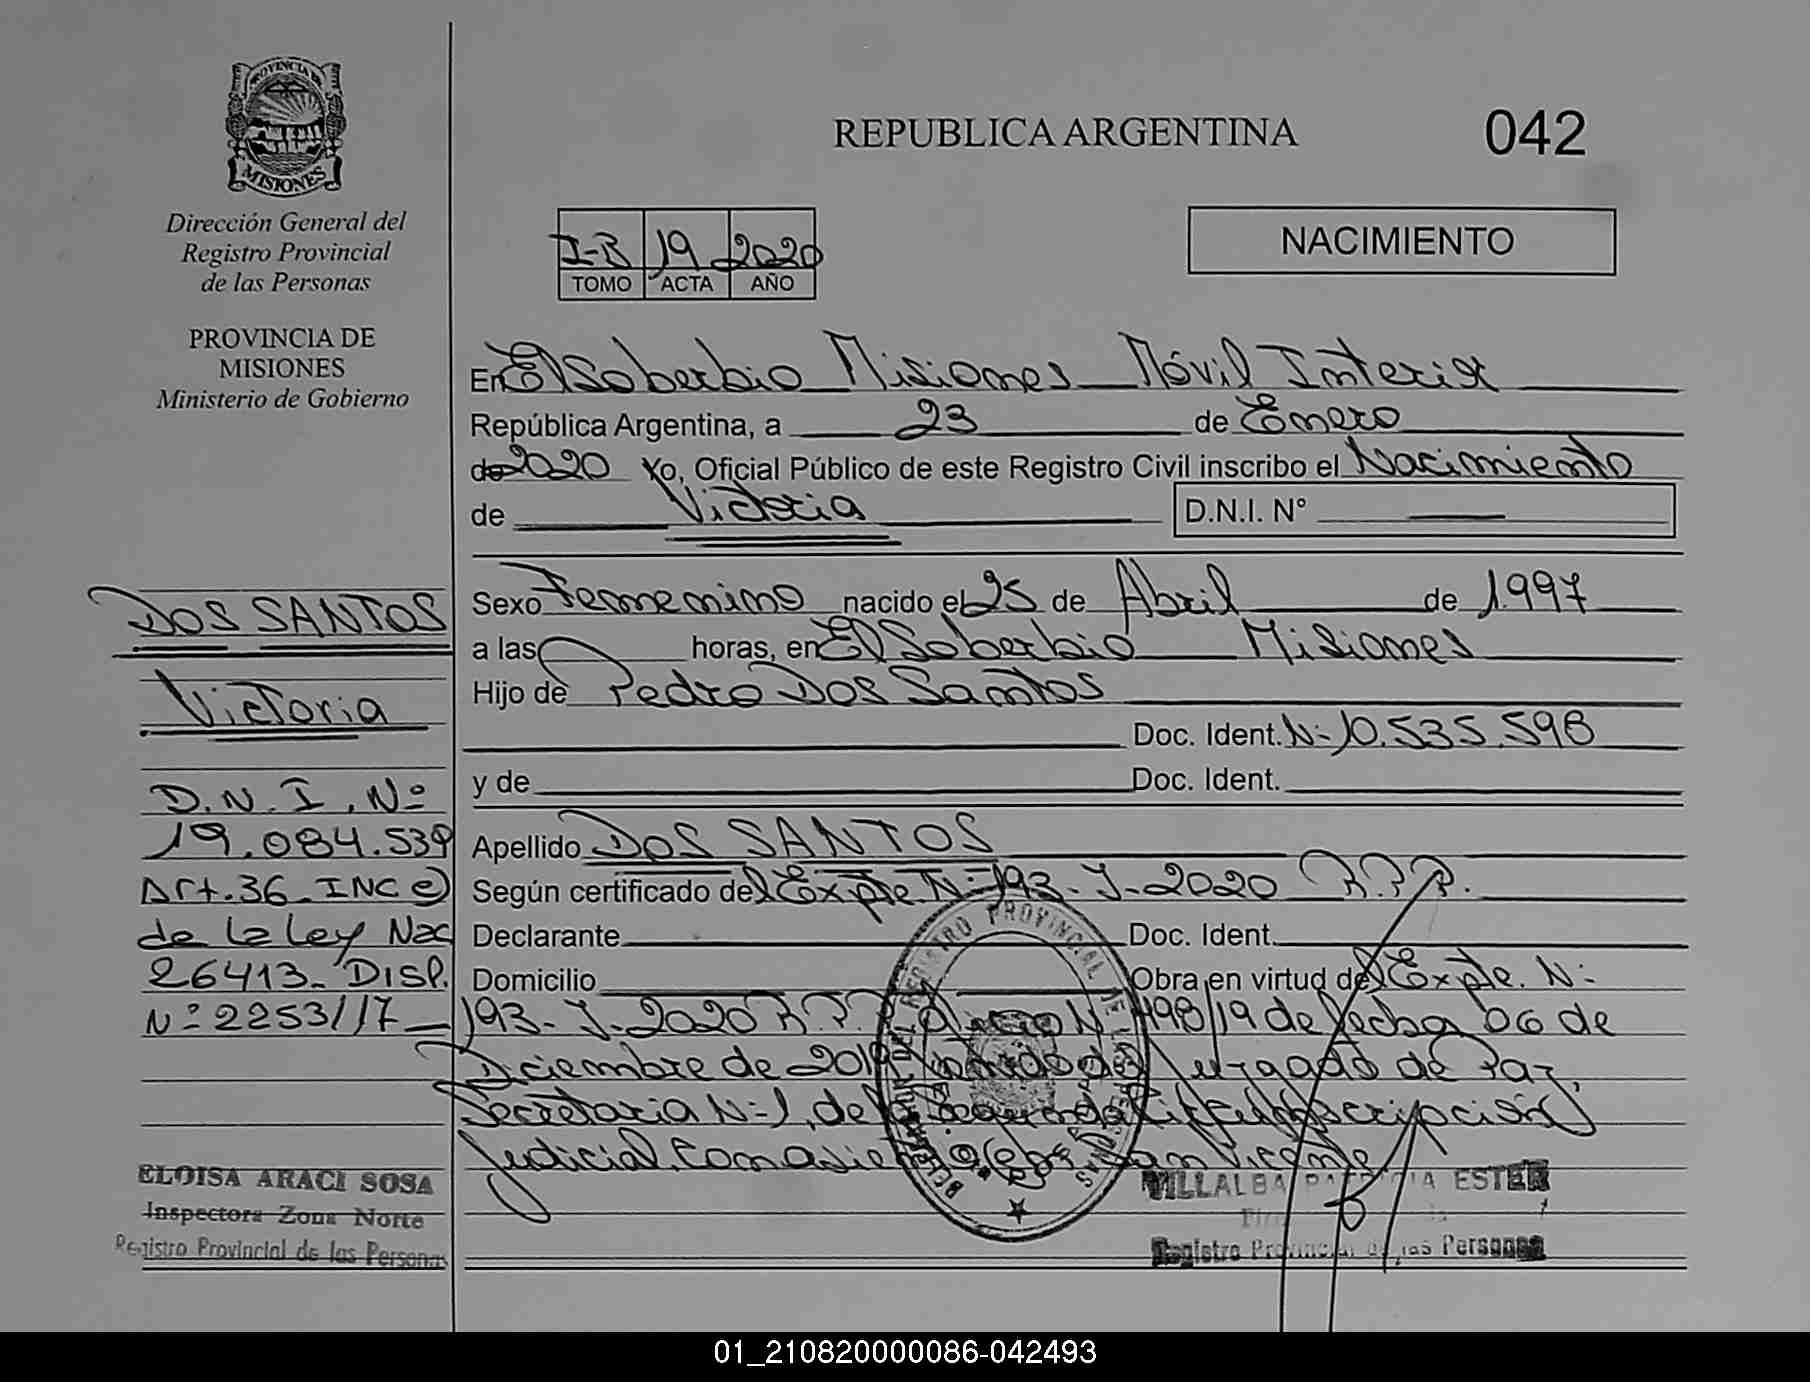 PROVINCIA DE
MISIONES
Dirección General del
Registro Provincial
de las Personas
PROVINCIA DE
MISIONES
Ministerio de Gobierno
DOS SANTOS
Victoria
D.N.I. Nº
19.084.539
Art. 36 INC e)
de la ley Nac
26413- DISP.
Nº 2253/17
ELOISA ARACI SOSA
Inspectora Zona Norte
Registro Provincial de las Personas
REPUBLICA ARGENTINA
042
I-B 19 2020
TOMO ACTA AÑO
NACIMIENTO
En El Soberbio Misiones Móvil Interior
República Argentina, a 23 de Enero
de 2020 Yo, Oficial Público de este Registro Civil inscribo el Nacimiento
de Victoria D.N.I. N°
Sexo Femenino nacido el 25 de Abril de 1.997
a las horas, en El Soberbio Misiones
Hijo de Pedro Dos Santos
Doc. Ident. Nº 10.535.598
y de Doc. Ident.
Apellido DOS SANTOS
Según certificado del Expte. Nº 193-J-2020 R.P.P.
Declarante Doc. Ident.
Domicilio Obra en virtud del Expte. Nº
193-J-2020 R.P.P. 498/19 de fecha 06 de
Diciembre de 2019 Juzgado de Paz,
Secretaria Nº 1, de la Segunda Circunscripción
Judicial, con asiento San Vicente
VILLALBA PATRICIA ESTER
Registro Provincial de las Personas
REGISTRO PROVINCIAL DE LAS PERSONAS
01_210820000086-042493